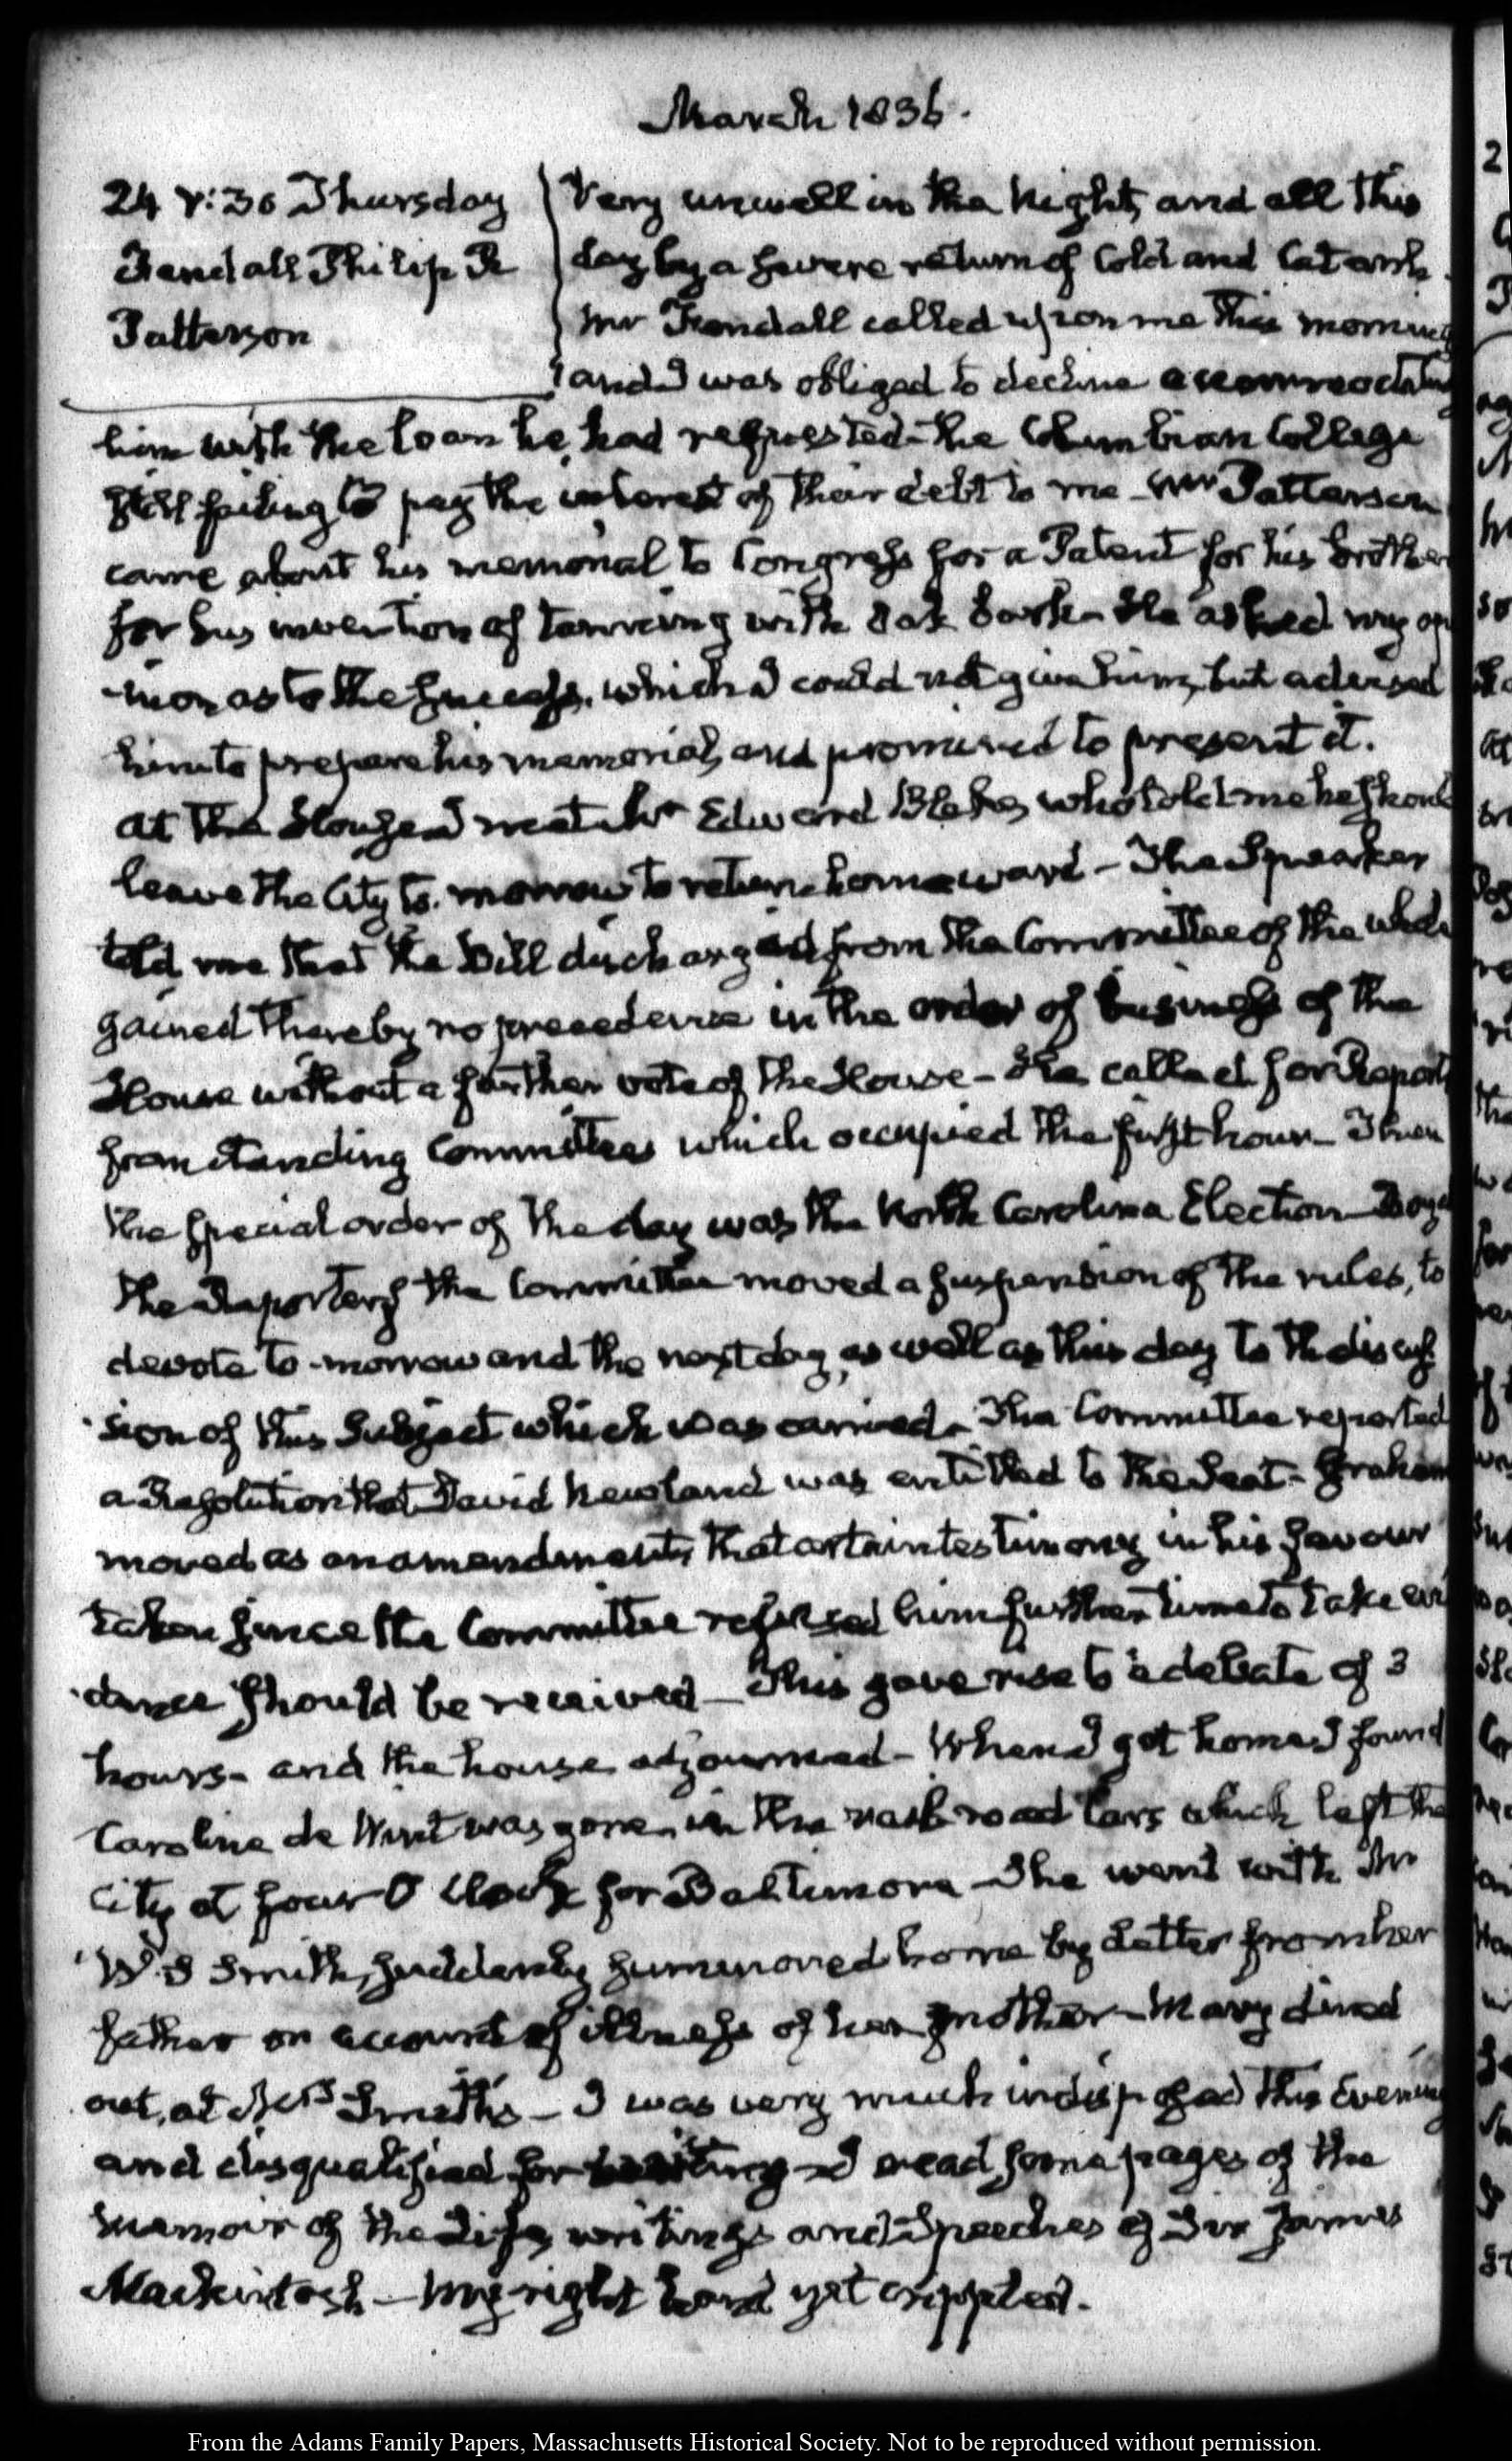 March 1836.
24 V:30 Thursday
Fendall Philip R
Patterson
Very unwell in the Night, and all this
day by a severe return of Cold and Catarrh.
Mr Fendall called upon me this morning
and I was obliged to decline accommodating
him with the loan he had requested – the Columbian College
still failing to pay the interest of their debt to me – Mr Patterson
came about his memorial to Congress for a Patent for his brother
for his invention of tanning with Oak bark – He asked my opi
-nion as to the success, which I could not give him, but advised
him to prepare his memorial, and promised to present it.
At the House I met Mr Edward Blake, who told me he should
leave the City to-morrow to return homeward – The Speaker
told me that the Bill discharged from the Committee of the whole
gained thereby no precedence in the order of business of the
House without a further vote of the House – He called for Reports
from standing Committees which occupied the first hour – Then
the special order of the day was the North Carolina Election – Boyd
the Reporter of the Committee moved a suspension of the rules, to
devote to-morrow and the next day, as well as this day to the discus
-sion of this Subject which was carried – The Committee reported
a Resolution that David Newland was entitled to the Seat – Graham
moved as an amendment, that certain testimony in his favour
taken since the Committee refused him further time to take evi
-dence should be received – This gave rise to a debate of 3
hours – and the house adjourned – When I got home I found
Caroline de Wint was gone, in the rail-road Cars which left the
City at four O'Clock for Baltimore – She went with Mr
W. S Smith, suddenly summoned home by Letter from her
father on account of illness of her mother – Mary dined
out, at Mrs Smith's – I was very much indisposed this Evening
and disqualified for writing – I read some pages of the
memoir of the Life, writings and Speeches of Sir James
Mackintosh – My right hand yet crippled.
From the Adams Family Papers, Massachusetts Historical Society. Not to be reproduced without permission.